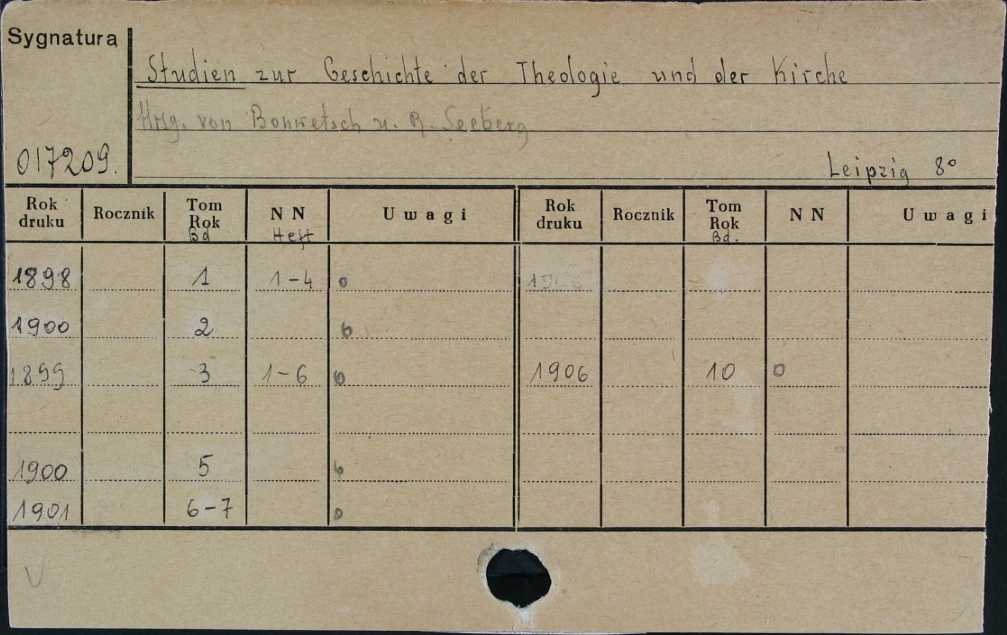 Sygnatura
Studien zur Geschichte der Theologie und der Kirche
Hrsg. von Bonwetsch u. R. Seeberg
017209.
Leipzig 8°
Rok druku Rocznik Tom Rok Bd NN Heft Uwagi Rok druku Rocznik Tom Rok Bd. NN Uwagi
1898 1 1-4 o
1900 2
1899 3 1-6 1906 10 o
1900 5
1901 6-7 o
V